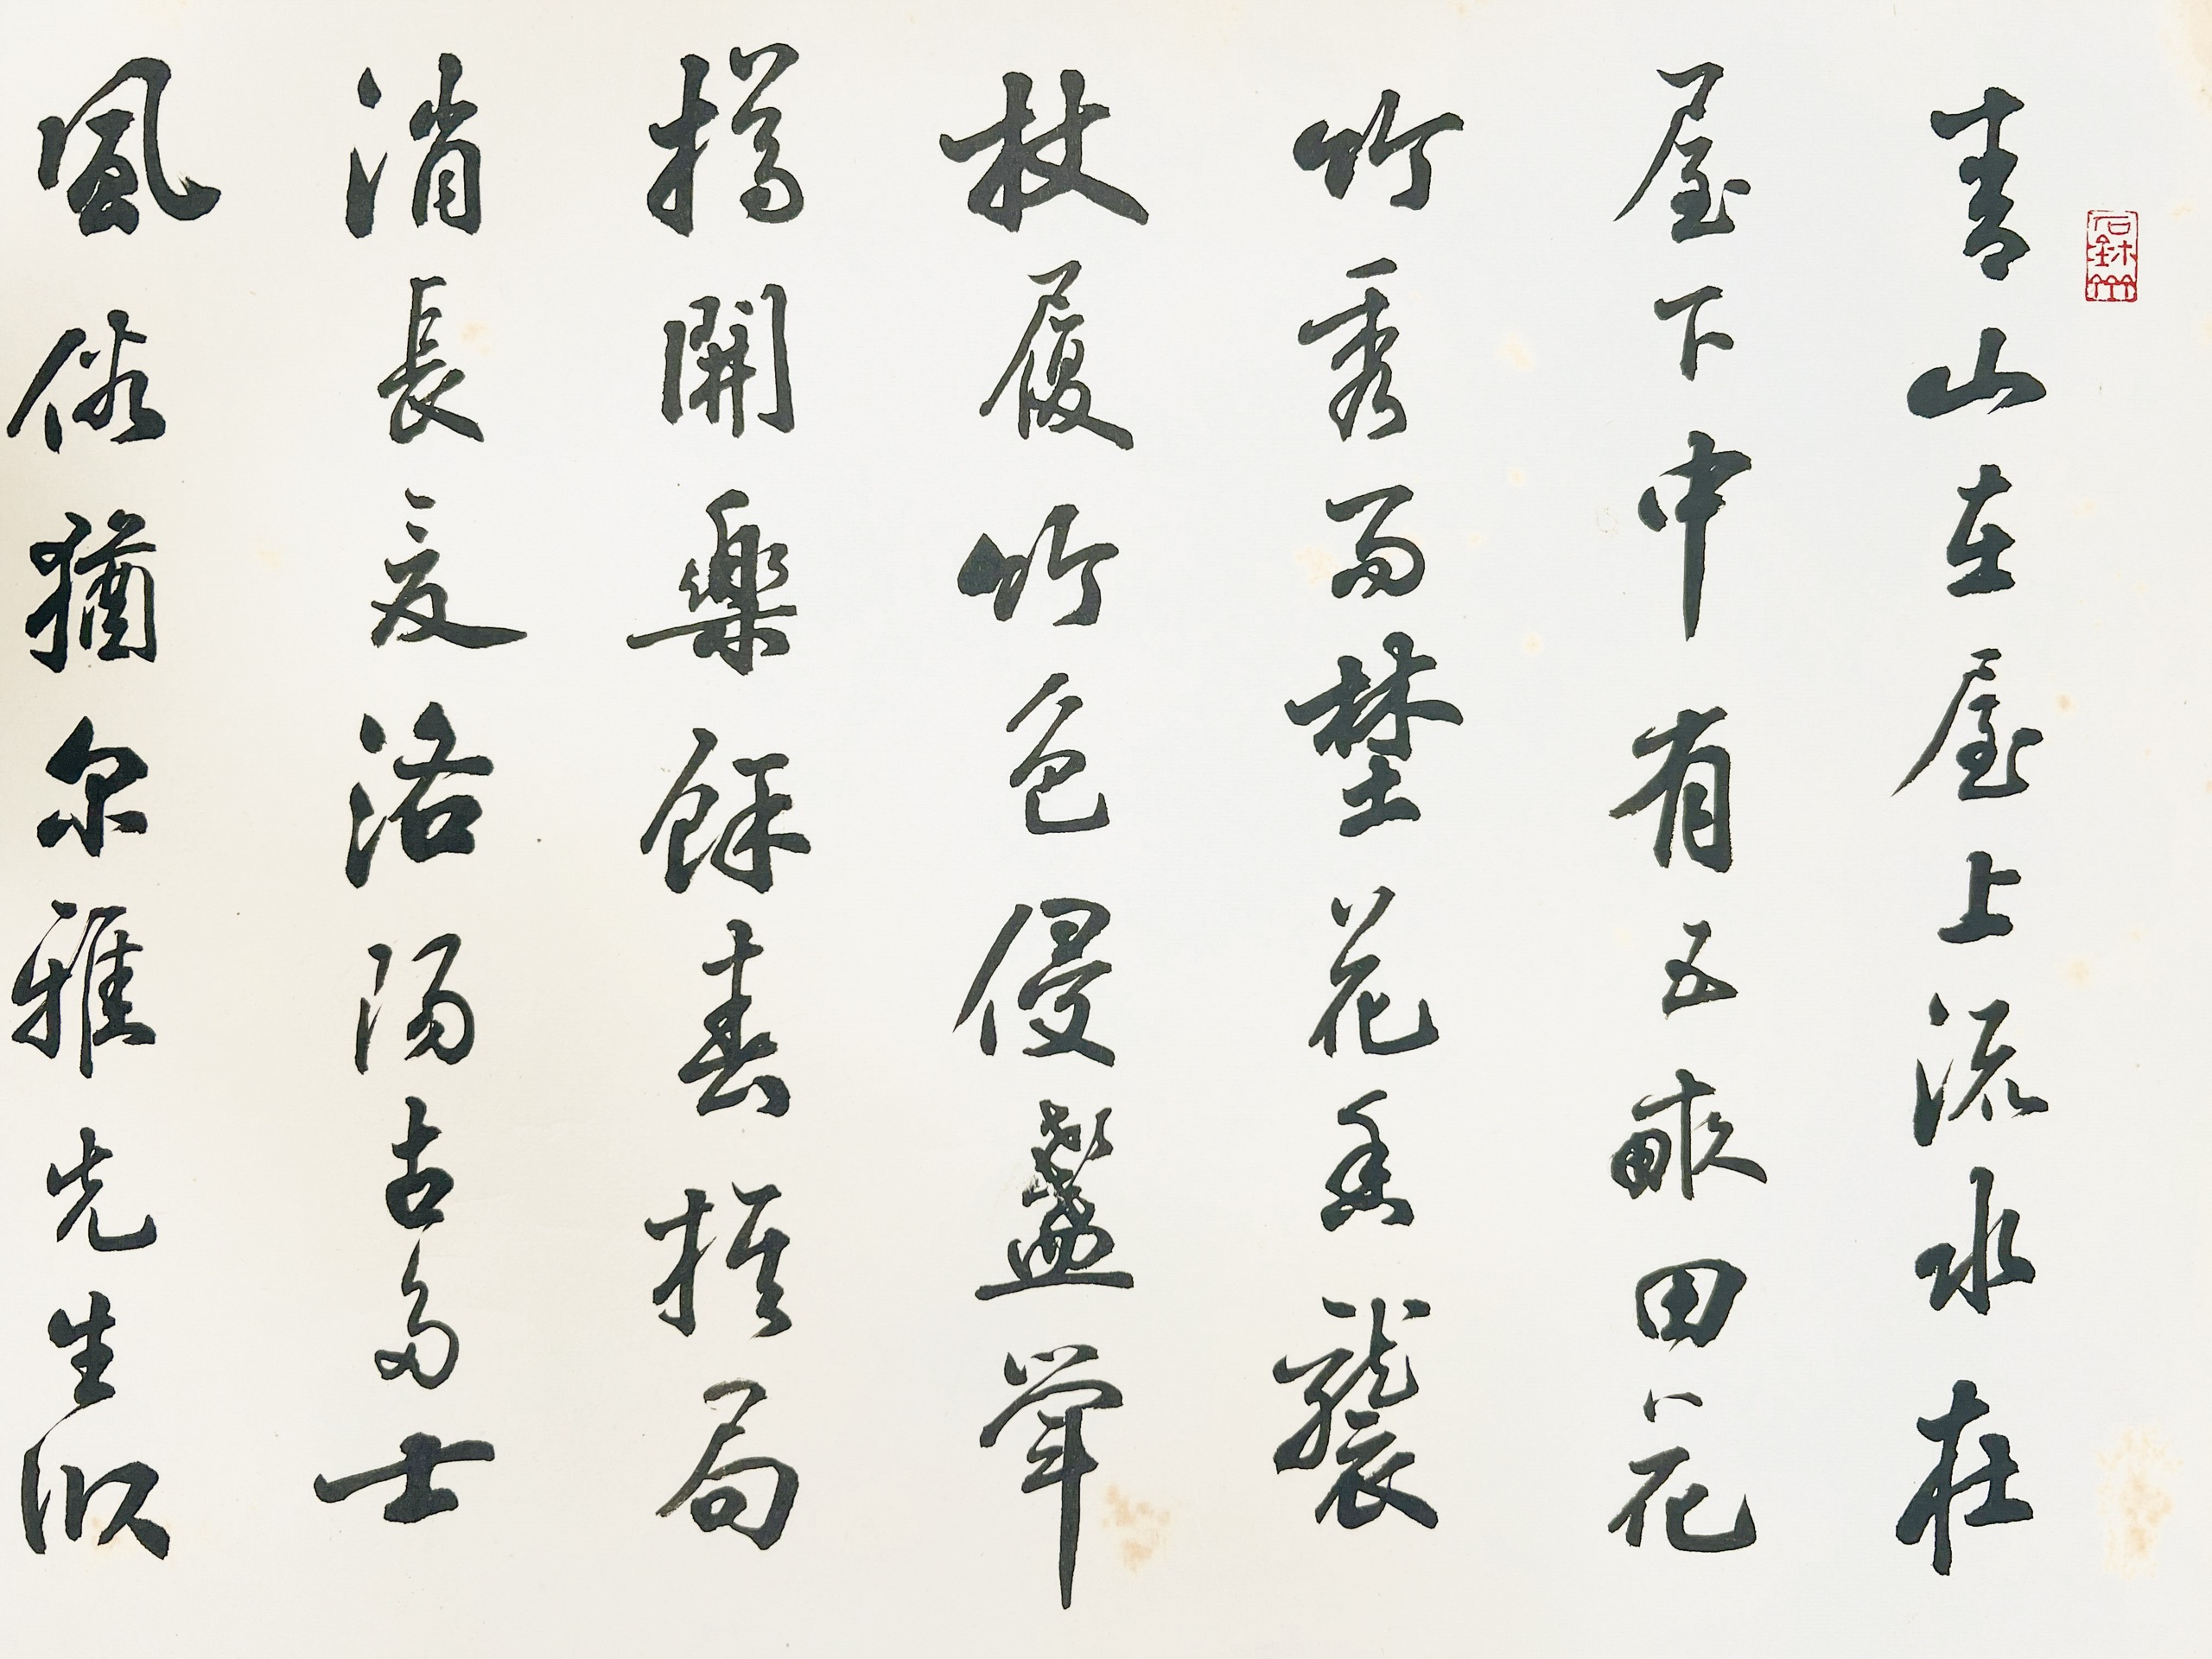 青山在屋上流水在
屋下中有五畝田花
竹秀而埜花香襲
杖履竹色侵盞斝
樽開樂餘春棋局
消長夏洛陽古多士
風俗猶尔雅先生臥